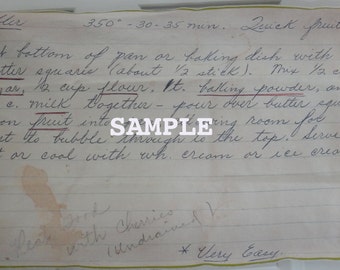 350° - 30-35 min. Quick fruit
t bottom of pan or baking dish with
tter squares (about 1/2 stick). Mix 1/2 c
gar, 1/2 cup flour, 1t. baking powder, an
c. milk together - pour over butter squa
on fruit into ing room for
t to bubble through to the top. Serve
t or cool with wh. cream or ice crea
SAMPLE
with Cherries
(undrained).
* Very Easy